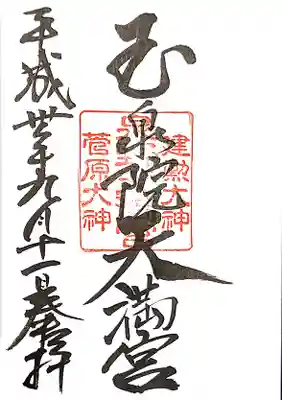 玉泉院天満宮
建勲大神
菅原大神
平成丗年九月十一日奉拝